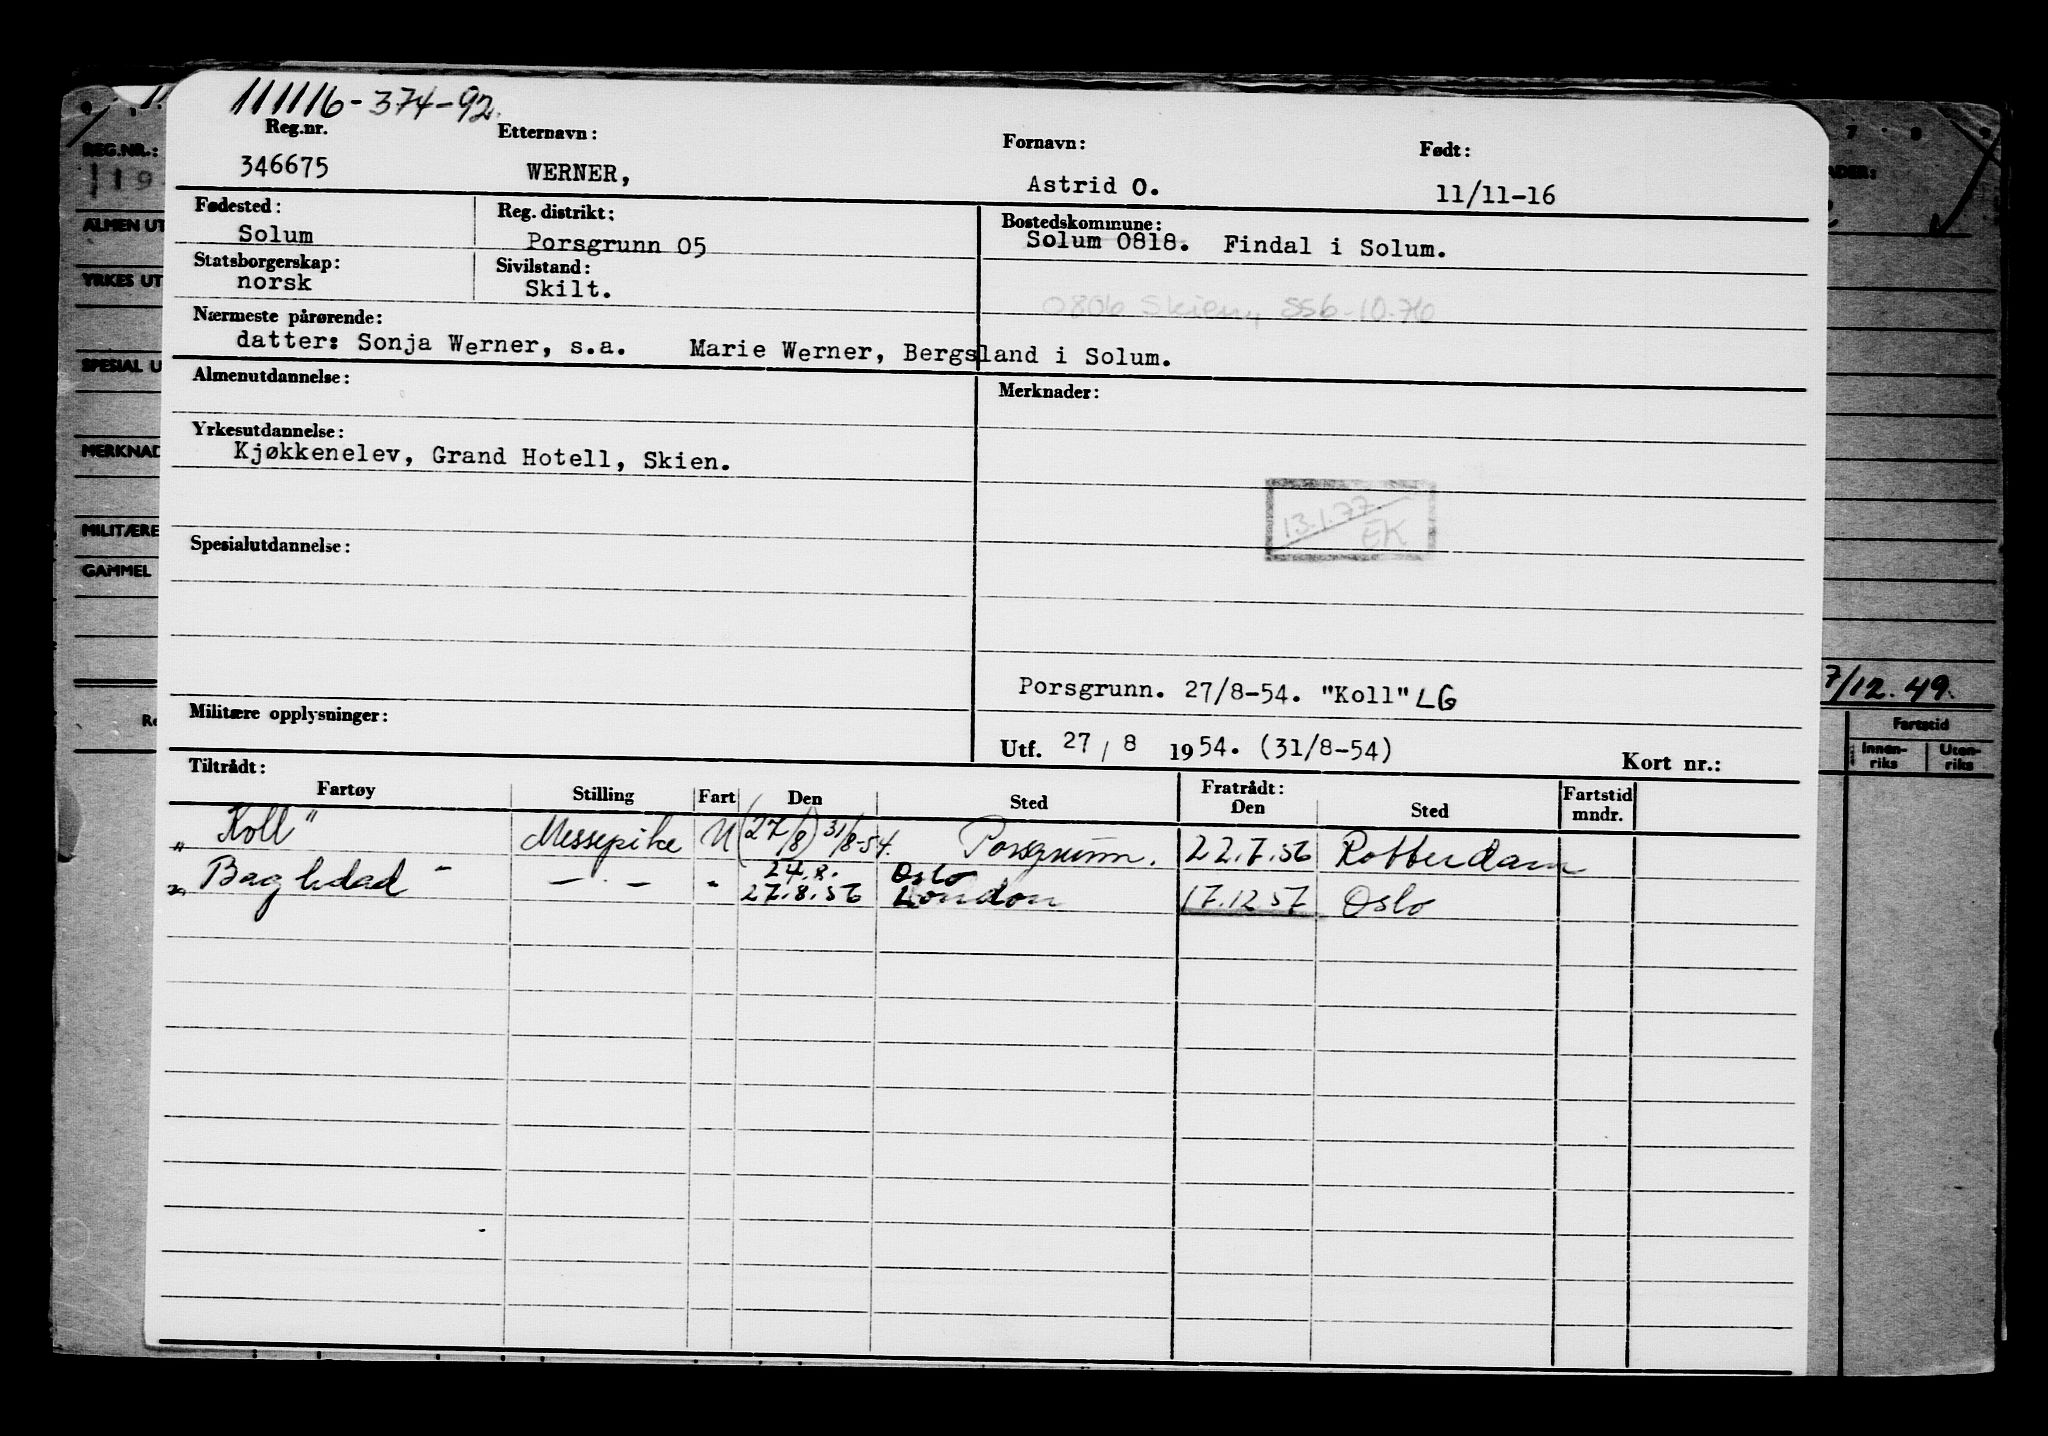 111116-374-92.
Reg.nr. Etternavn: Fornavn: Født:
346675 WERNER, Astrid O. 11/11-16
Fødested: Reg. distrikt: Bostedskommune:
Solum Porsgrunn 05 Solum 0818. Findal i Solum.
Statsborgerskap: Sivilstand:
norsk Skilt.
0806 Skien, SS6-10.76
Nærmeste pårørende:
datter: Sonja Werner, s.a. Marie Werner, Bergsland i Solum.
Almenutdannelse: Merknader:
Yrkesutdannelse:
Kjøkkenelev, Grand Hotell, Skien.
13.1.77
EK
Spesialutdannelse:
Porsgrunn. 27/8-54. "Koll" LG
Militære opplysninger:
Utf. 27/8 1954. (31/8-54) Kort nr.:
Tiltrådt: Fratrådt:
Fartøy Stilling Fart Den Sted Den Sted Fartstid mndr.
"Koll" Messepike U (27/8) 31/8-54. Porsgrunn. 22.7.56 Rotterdam
24.8. Oslo
"Baghdad" — . — " 27.8.56 London 17.12 57 Oslo
REG.NR.:
119
ALMEN UT
YRKES UT
SPESIAL U
MERKNAD
MILITÆRE
GAMMEL
7 8 9
ADER:
7/12.49.
Fartstid
Innen-riks Uten-riks